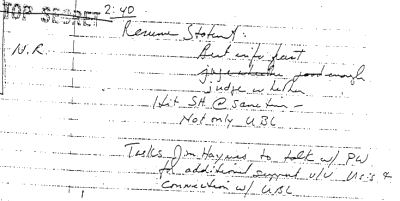 TOP SECRET 2:40
Resume Statement:
N.R. Best info fast
judge whether good enough
judge whether
Hit SH @ same time -
Not only UBL
Tasks Jim Haynes to talk w/ PW
for additional support v/v Usis &
connection w/ UBL